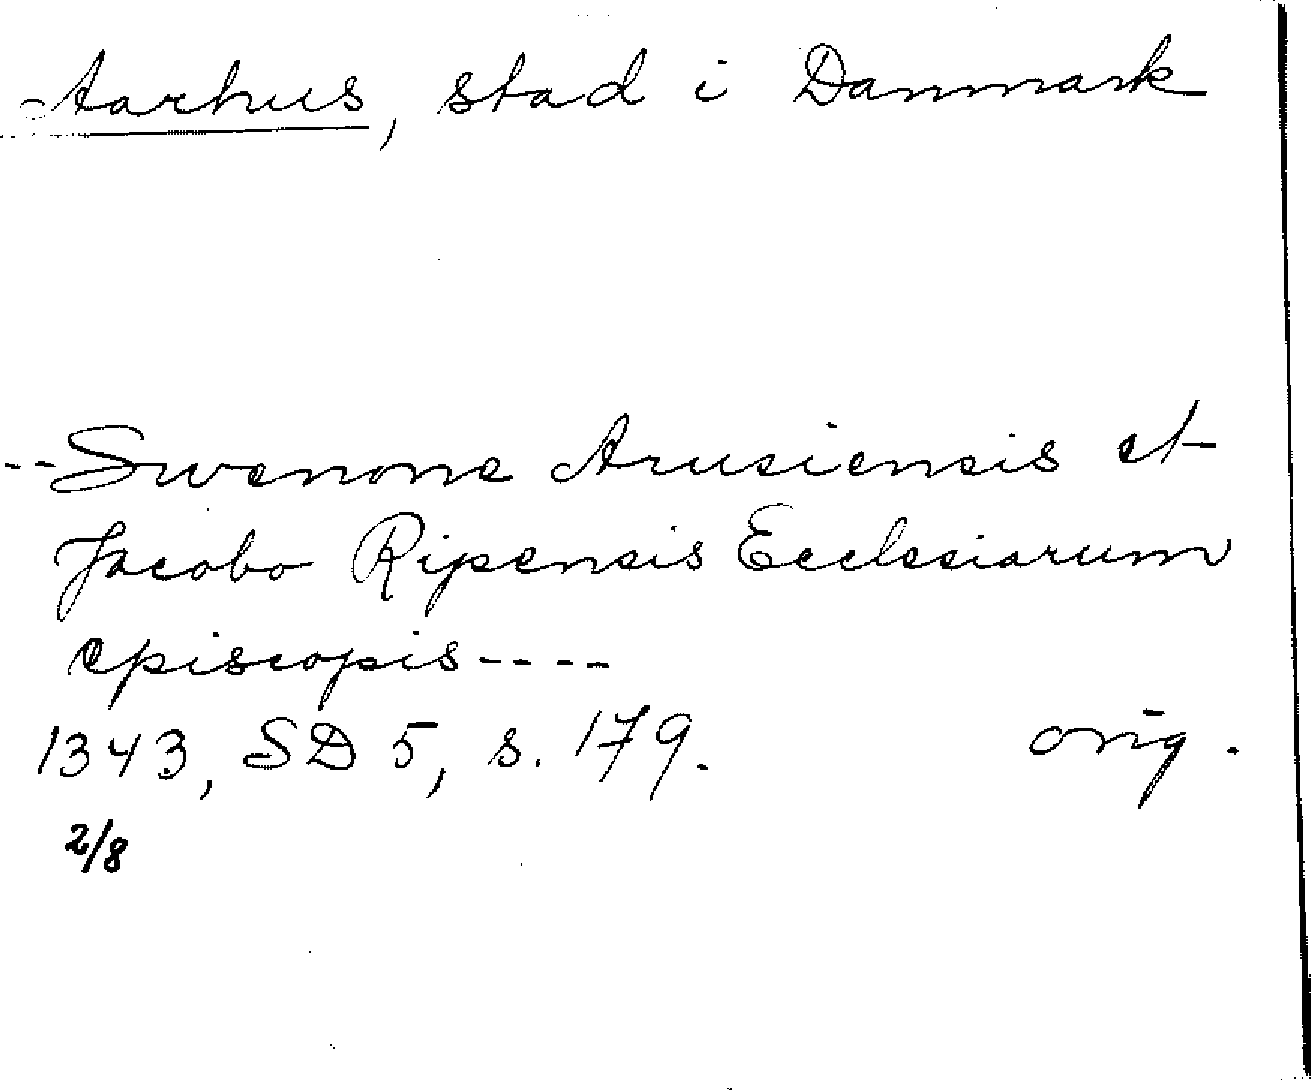 Aarhus, stad i Danmark
--Swenone Arusiensis et
Jacobo Ripensis Ecclesiarum
episcopis----
1343, SD 5, s. 179. orig.
2/8